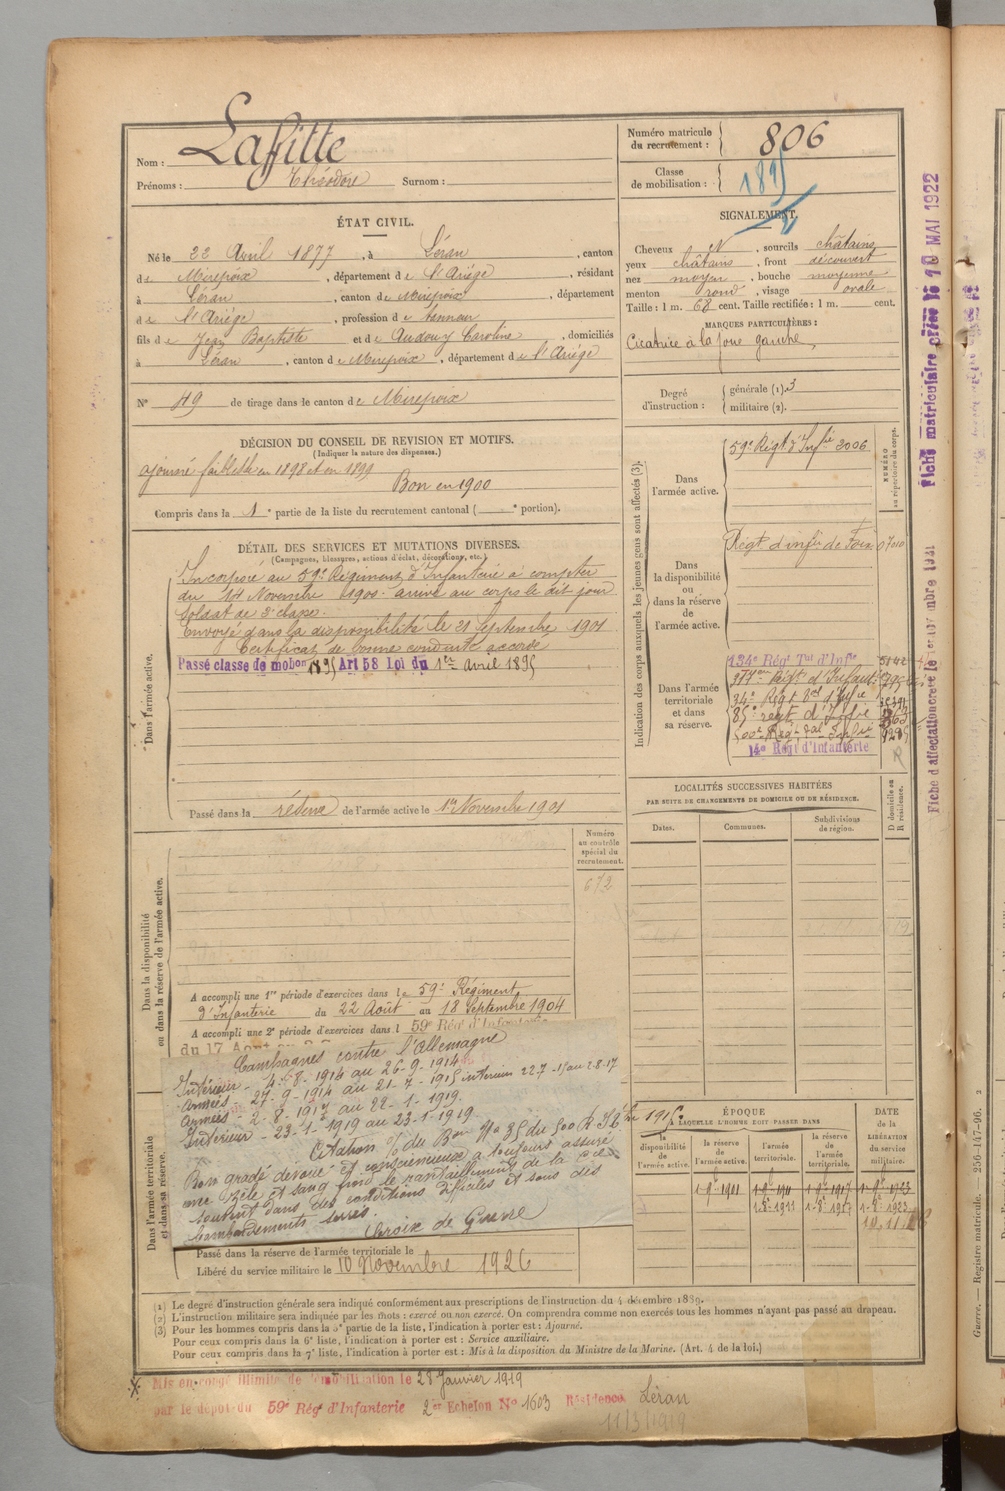 Nom : Lafitte
Prénoms : Théodore Surnom :
Numéro matricule du recrutement : 806
Classe de mobilisation : 1895
ÉTAT CIVIL.
Né le 22 Avril 1877, à Léran, canton
de Mirepoix, département de l'Ariége, résidant
à Léran, canton de Mirepoix, département
de l'Ariége, profession de tanneur
fils de Jean Baptiste et de Audouy Caroline, domiciliés
à Léran, canton de Mirepoix, département de l'Ariége
N° 49 de tirage dans le canton de Mirepoix
SIGNALEMENT.
Cheveux N, sourcils châtains
yeux châtains, front découvert
nez moyen, bouche moyenne
menton rond, visage ovale
Taille : 1 m. 68 cent. Taille rectifiée : 1 m. cent.
MARQUES PARTICULIÈRES :
Cicatrice à la joue gauche
Degré d'instruction : générale (1). 3
militaire (2).
DÉCISION DU CONSEIL DE REVISION ET MOTIFS.
(Indiquer la nature des dispenses.)
ajourné faiblesse en 1898 et en 1899
Bon en 1900
Compris dans la 1e partie de la liste du recrutement cantonal ( e portion).
DÉTAIL DES SERVICES ET MUTATIONS DIVERSES.
(Campagnes, blessures, actions d'éclat, décorations, etc.)
Dans l'armée active.
Incorporé au 59e Régiment d'Infanterie à compter
du 14 Novembre 1900. arrivé au corps le dit jour
Soldat de 2e classe.
Envoyé dans la disponibilité le 21 Septembre 1901
Certificat de bonne conduite accordé
Passé classe de mobon 1895 Art 58 Loi du 1er Avril 1895
Passé dans la réserve de l'armée active le 1er Novembre 1901
Indication des corps auxquels les jeunes gens sont affectés (3).
NUMÉRO au répertoire du corps.
Dans l'armée active.
59e Régt d'Infie 2006
Dans la disponibilité ou dans la réserve de l'armée active.
Régt d'infie de Foix
Dans l'armée territoriale et dans sa réserve.
134e Régt Tal d'Infie
34e Régt
85e regt d'Infie
14e Régt d'Infanterie
LOCALITÉS SUCCESSIVES HABITÉES
PAR SUITE DE CHANGEMENTS DE DOMICILE OU DE RÉSIDENCE.
Dates.
Communes.
Subdivisions de région.
D domicile ou R résidence.
Dans la disponibilité ou dans la réserve de l'armée active.
Numéro au contrôle spécial du recrutement.
672
A accompli une 1re période d'exercices dans le 59e Régiment
d'Infanterie du 22 Août au 18 Septembre 1904
A accompli une 2e période d'exercices dans l 59e Rég d'Infanterie
du 17 Août
Campagnes contre l'Allemagne
Intérieur - 4-8-1914 au 26-9-1914
Armées - 27-9-1914 au 21-7-1915 intérieur 22-7-15 au 2-8-17
Armées - 2-8-1917 au 22-1-1919.
Intérieur - 23-1-1919 au 23-1-1919.
Citation
Bon gradé dévoué et consciencieux a toujours assuré
avec zèle et sang froid le ravitaillement de la Cie
souvent dans des conditions difficiles et sous des
bombardements
Croix de Guerre
Dans l'armée territoriale et dans sa réserve.
ÉPOQUE
À LAQUELLE L'HOMME DOIT PASSER DANS
la disponibilité de l'armée active.
la réserve de l'armée active.
l'armée territoriale.
la réserve de l'armée territoriale.
DATE de la LIBÉRATION du service militaire.
Passé dans la réserve de l'armée territoriale le
Libéré du service militaire le 10 Novembre 1926
(1) Le degré d'instruction générale sera indiqué conformément aux prescriptions de l'instruction du 4 décembre 1889.
(2) L'instruction militaire sera indiquée par les mots : exercé ou non exercé. On comprendra comme non exercés tous les hommes n'ayant pas passé au drapeau.
(3) Pour les hommes compris dans la 5e partie de la liste, l'indication à porter est : Ajourné.
Pour ceux compris dans la 6e liste, l'indication à porter est : Service auxiliaire.
Pour ceux compris dans la 7e liste, l'indication à porter est : Mis à la disposition du Ministre de la Marine. (Art. 4 de la loi.)
Mis en congé illimité de démobilisation le 28 Janvier 1919
par le dépôt du 59e Rég d'Infanterie 2e Echelon No 1603 Résidence Léran
Guerre. — Registre matricule. — 256-147-06.